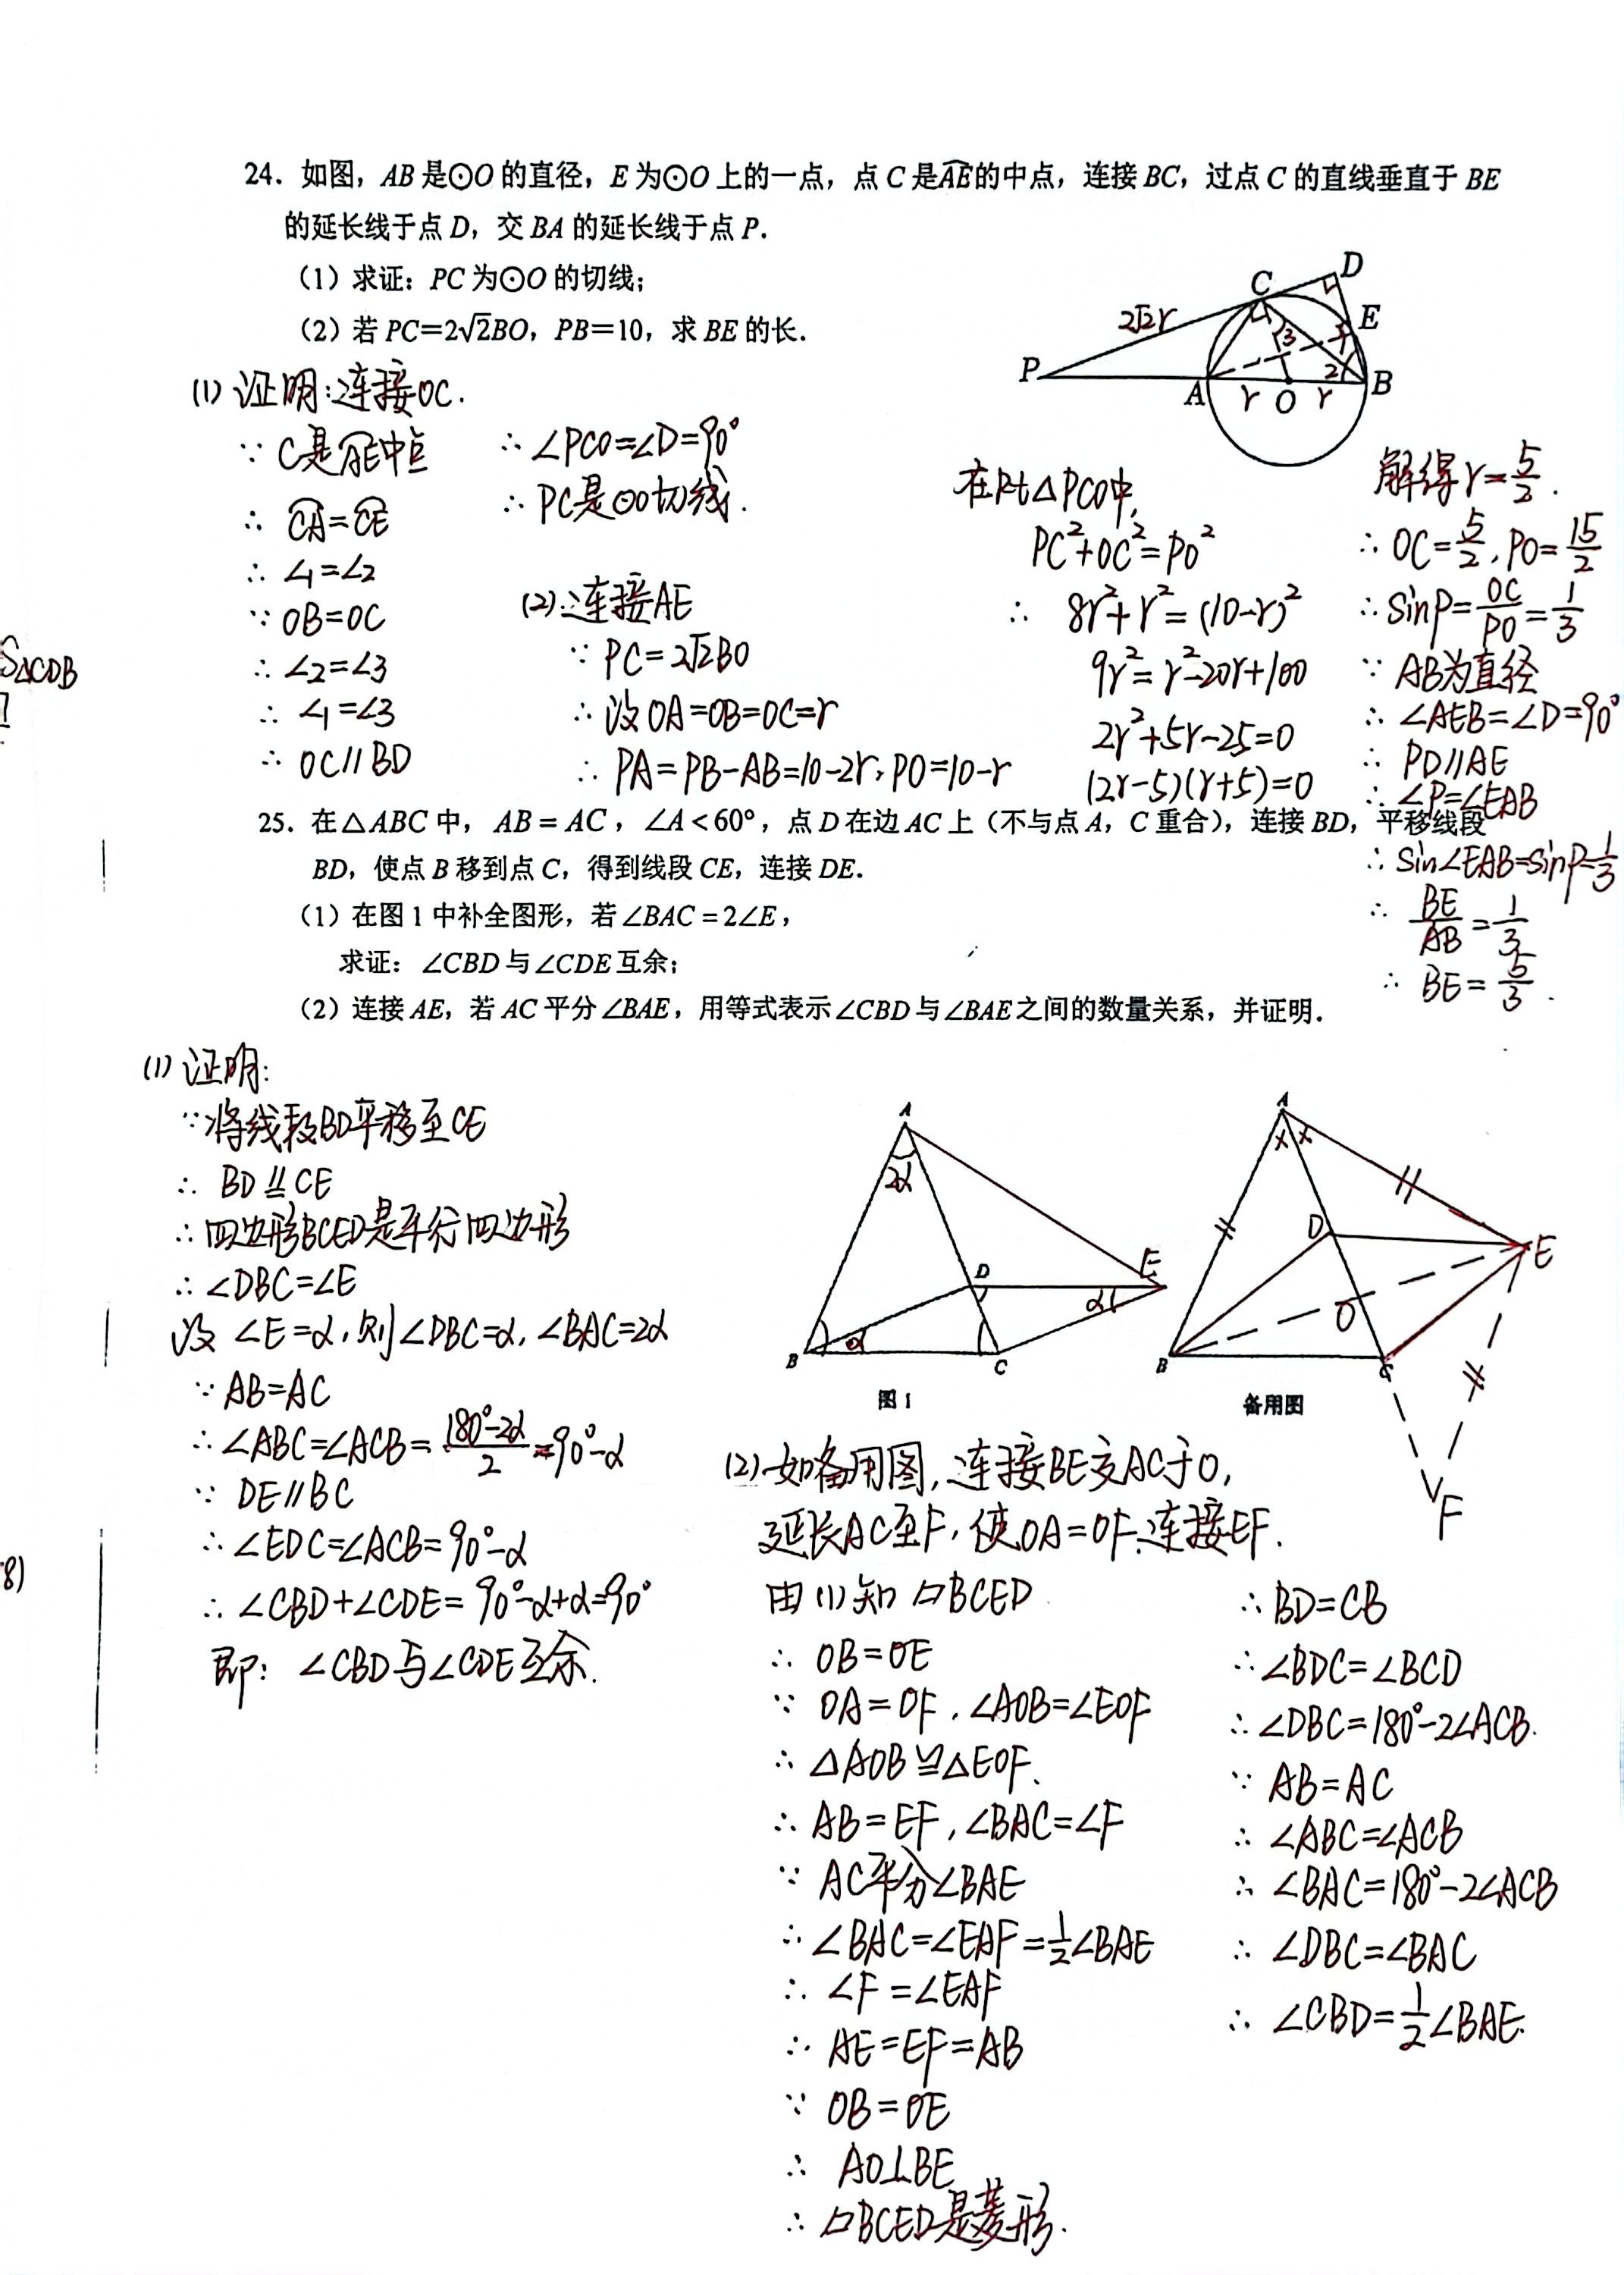 24. 如图，AB 是⊙O 的直径，E 为⊙O 上的一点，点 C 是AE的中点，连接 BC，过点 C 的直线垂直于 BE
的延长线于点 D，交 BA 的延长线于点 P．
（1）求证：PC 为⊙O 的切线；
（2）若 PC=2√2BO，PB=10，求 BE 的长．
C
D
E
2√2r
3
P
2
B
A
r
O
r
(1) 证明:连接OC.
∵ C是AE中点
∴ CA=CE
∴ ∠1=∠2
∵ OB=OC
∴ ∠2=∠3
∴ ∠1=∠3
∴ OC∥BD
∴ ∠PCO=∠D=90°
∴ PC是⊙O切线.
(2)连接AE
∵ PC=2√2BO
∴ 设OA=OB=OC=r
∴ PA=PB-AB=10-2r,PO=10-r
在Rt△PCO中,
PC²+OC²=PO²
∴ 8r²+r²=(10-r)²
9r²=r²-20r+100
2r²+5r-25=0
(2r-5)(r+5)=0
解得r=5/2.
∴ OC=5/2,PO=15/2
∴ sinP=OC/PO=1/3
∵ AB为直径
∴ ∠AEB=∠D=90°
∴ PD∥AE
∴ ∠P=∠EAB
∴ sin∠EAB=sinP=1/3
∴ BE/AB=1/3
∴ BE=5/3.
S△CDB
25. 在△ABC 中，AB = AC，∠A < 60°，点 D 在边 AC 上（不与点 A，C 重合），连接 BD，平移线段
BD，使点 B 移到点 C，得到线段 CE，连接 DE．
（1）在图 1 中补全图形，若∠BAC = 2∠E，
求证：∠CBD 与∠CDE 互余；
（2）连接 AE，若 AC 平分∠BAE，用等式表示∠CBD 与∠BAE 之间的数量关系，并证明．
(1) 证明:
∵将线段BD平移至CE
∴ BD∥=CE
∴四边形BCED是平行四边形
∴ ∠DBC=∠E
设 ∠E=α,则∠DBC=α,∠BAC=2α
∵ AB=AC
∴ ∠ABC=∠ACB=(180°-2α)/2=90°-α
∵ DE∥BC
∴ ∠EDC=∠ACB=90°-α
∴ ∠CBD+∠CDE=90°-α+α=90°
即: ∠CBD与∠CDE互余.
8)
A
2α
D
E
α
α
B
C
图 1
A
× ×
D
E
O
B
C
F
备用图
(2)如备用图,连接BE交AC于O,
延长AC至F,使OA=OF,连接EF.
由(1)知▱BCED
∴ OB=OE
∵ OA=OF,∠AOB=∠EOF
∴ △AOB≌△EOF.
∴ AB=EF,∠BAC=∠F
∵ AC平分∠BAE
∴ ∠BAC=∠EAF=1/2∠BAE
∴ ∠F=∠EAF
∴ AE=EF=AB
∵ OB=OE
∴ AO⊥BE
∴ ▱BCED是菱形.
∴ BD=CB
∴ ∠BDC=∠BCD
∴ ∠DBC=180°-2∠ACB.
∵ AB=AC
∴ ∠ABC=∠ACB
∴ ∠BAC=180°-2∠ACB
∴ ∠DBC=∠BAC
∴ ∠CBD=1/2∠BAE.